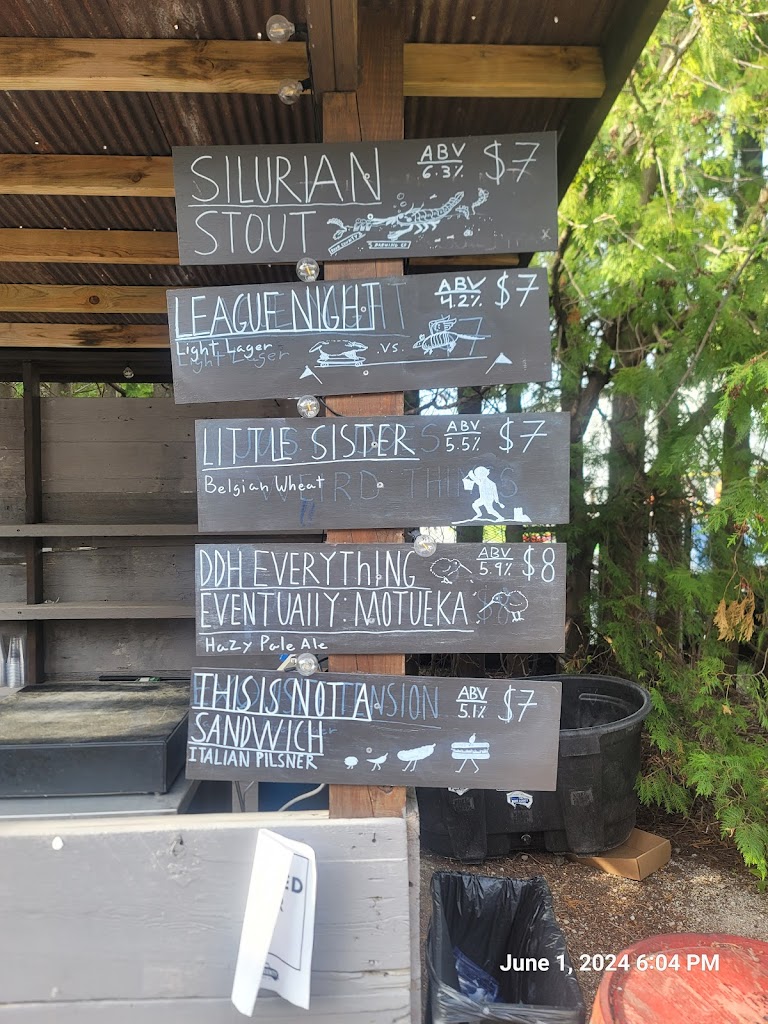 SILURIAN
STOUT
ABV
6.3%
$7
x
LEAGUE NIGHT
Light Lager
Light Lager
ABV
4.2%
$7
.vs.
7
LITTLE SISTER
Belgian Wheat
WEIRD THINGS
ABV
5.5%
$7
DDH EVERYThING
EVENTUAllY: MOTUEKA
Hazy Pale Ale
ABV
5.9%
$8
THIS IS NOT A
SANDWICH
ITALIAN PILSNER
TENSION
ABV
5.1%
$7
June 1, 2024 6:04 PM